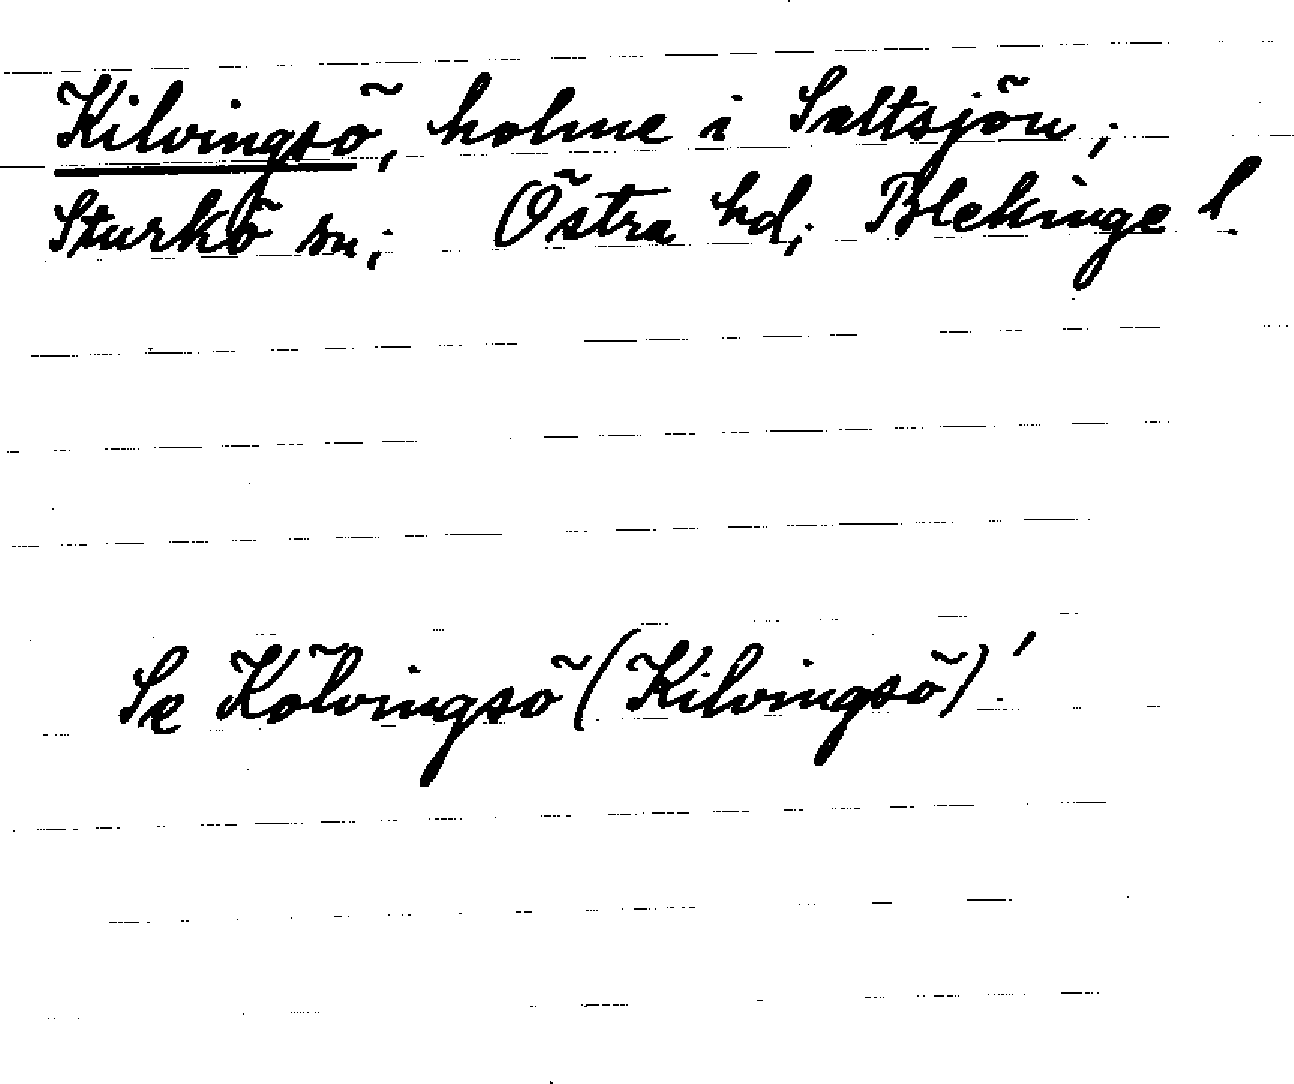 Kilvingsö, holme i Saltsjön;
Sturkö sn; Östra hd; Blekinge l.
Se Kölvingsö (Kilvingsö)!